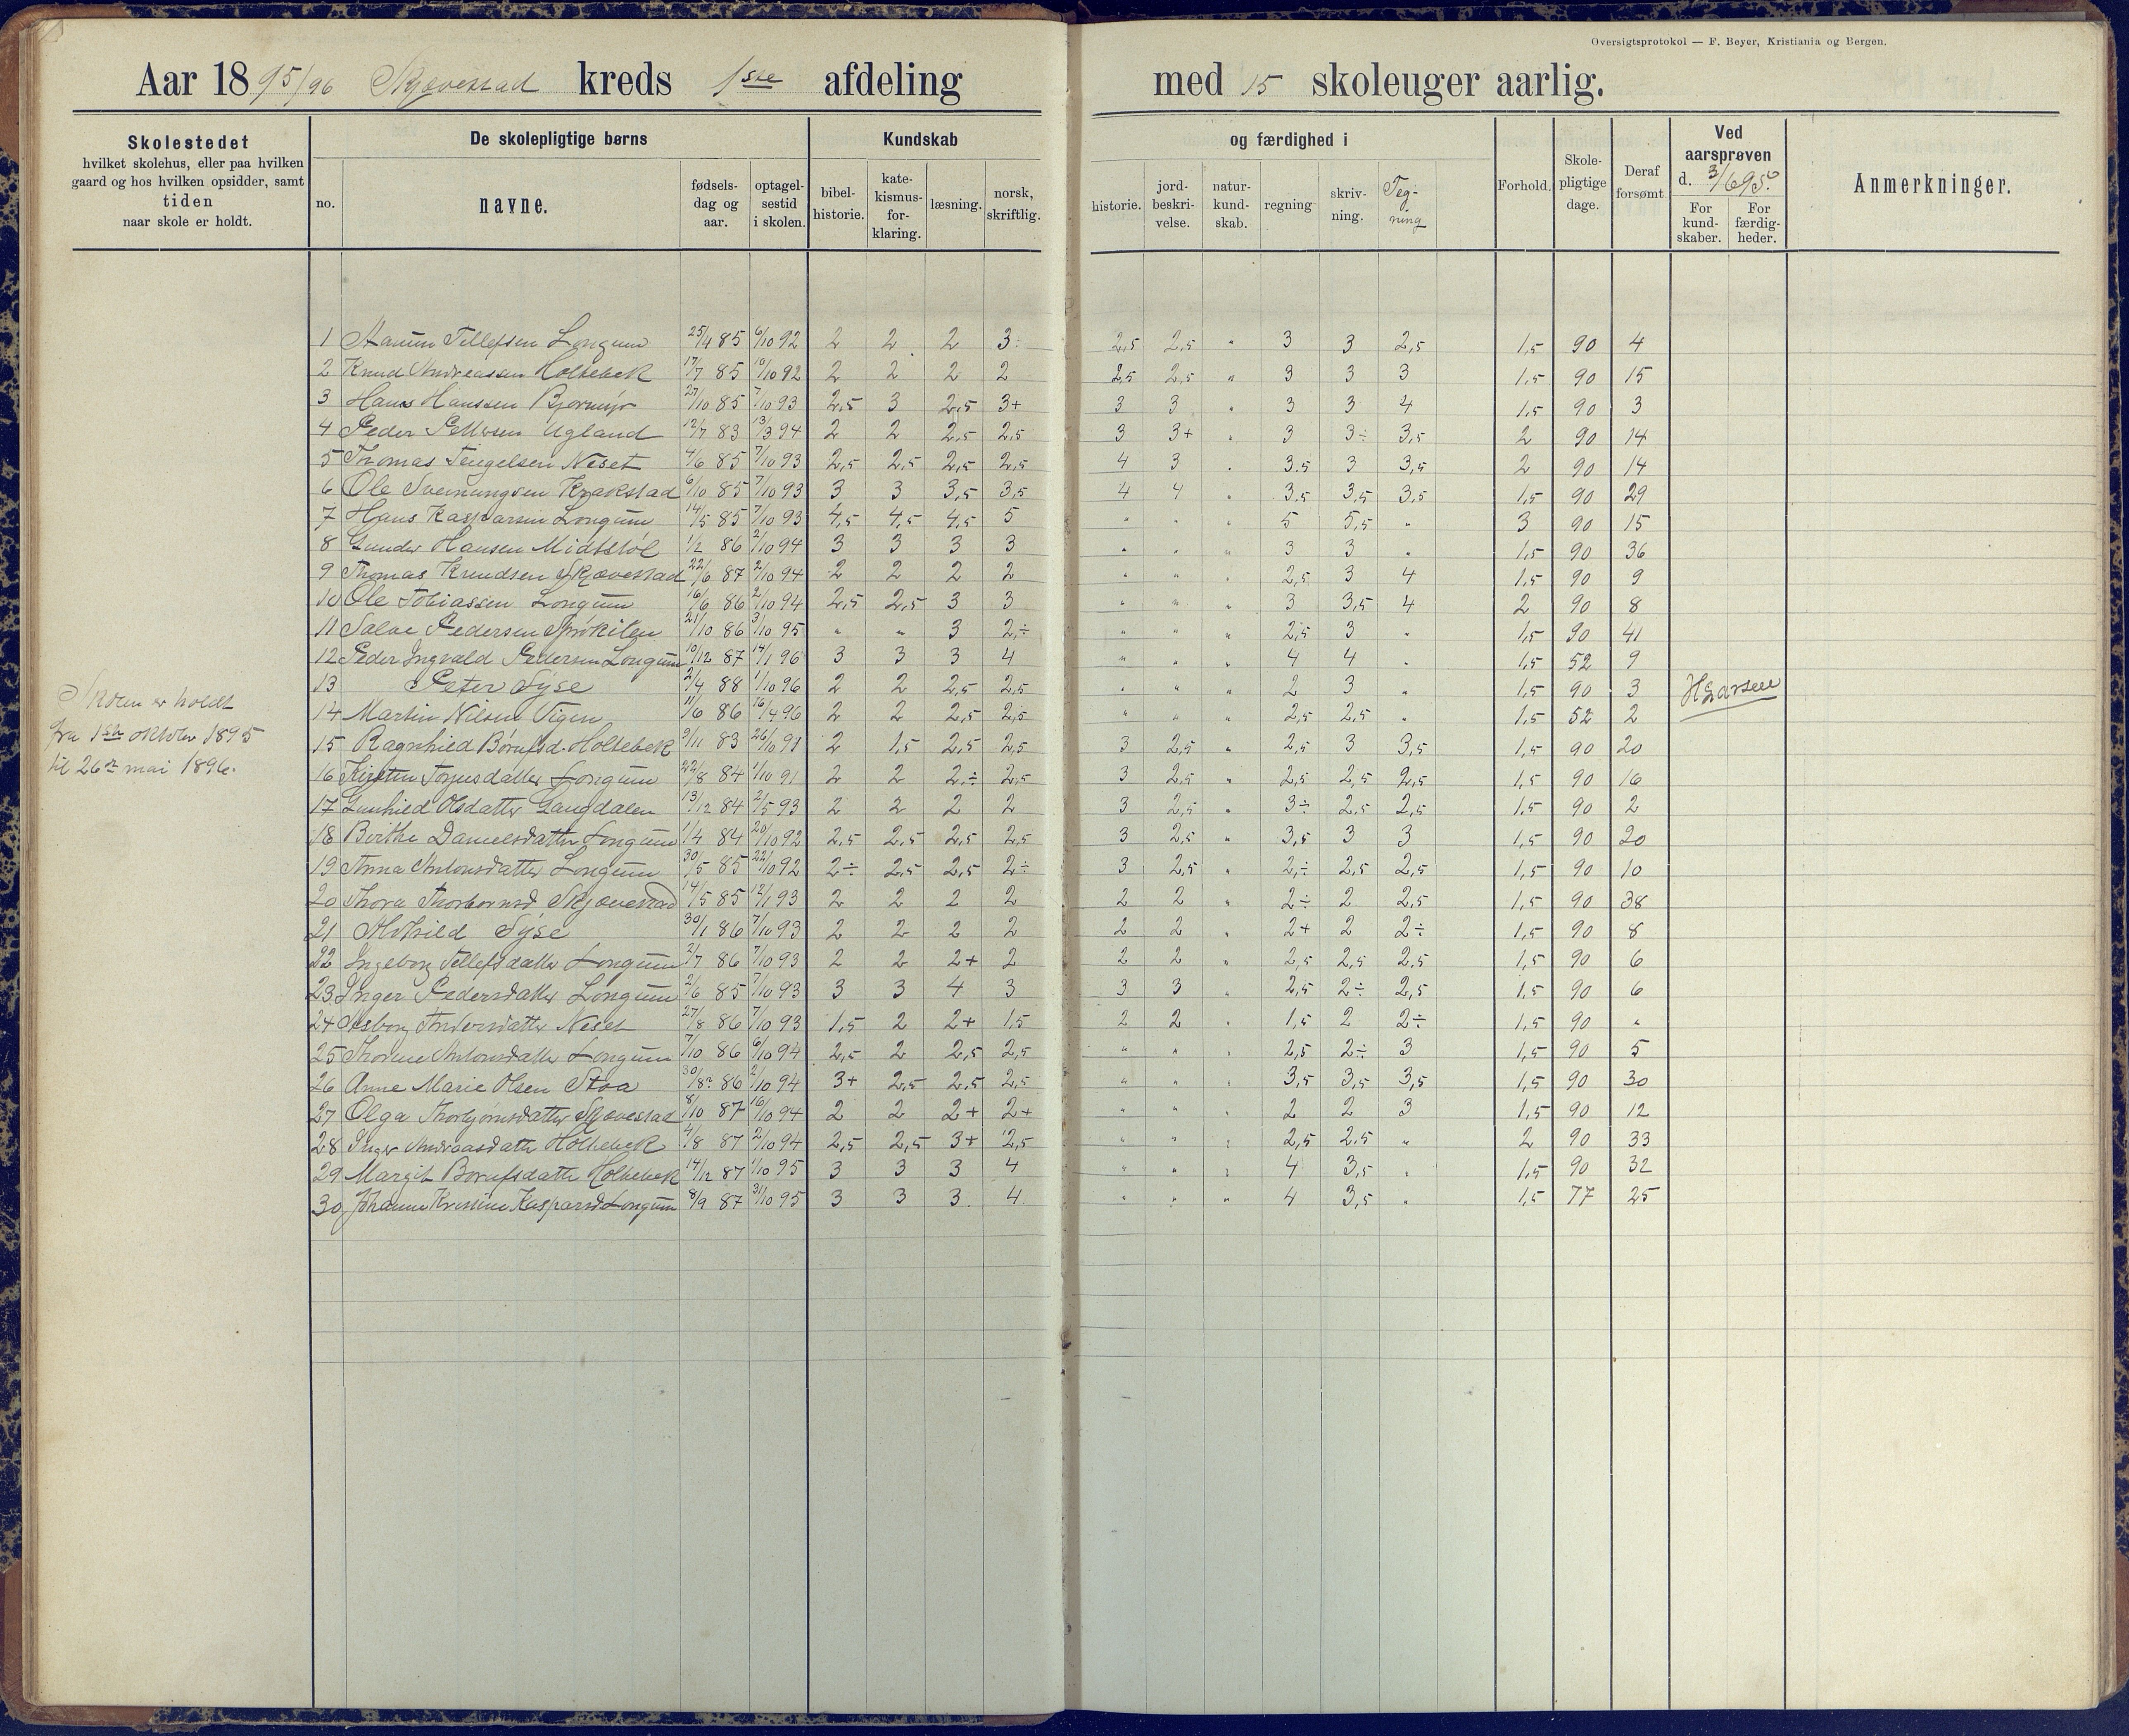 Oversigtsprotokol — F. Beyer, Kristiania og Bergen.
Aar 1895/96 Skjævestad kreds 1ste afdeling med 15 skoleuger aarlig.
Skolestedet
hvilket skolehus, eller paa hvilken
gaard og hos hvilken opsidder, samt
tiden
naar skole er holdt.
De skolepligtige børns
no.
navne.
fødsels-
dag og
aar.
optagel-
sestid
i skolen.
Kundskab
bibel-
historie.
kate-
kismus-
for-
klaring.
læsning.
norsk,
skriftlig.
og færdighed i
historie.
jord-
beskri-
velse.
natur-
kund-
skab.
regning
skriv-
ning.
Teg-
ning
Forhold.
Skole-
pligtige
dage.
Deraf
forsømt.
Ved
aarsprøven
d. 3/6 95.
For
kund-
skaber.
For
færdig-
heder.
Anmerkninger.
1 Tellefsen Longum 25/4 85 6/10 92 2 2 2 3÷ 2,5 2,5 " 3 3 2,5 1,5 90 4
2 Knud Andreassen Holtebek 17/7 85 10/10 92 2 2 2 2 2,5 2,5 " 3 3 3 1,5 90 15
3 Hans Hanssen Bjørmyr 27/10 85 7/10 93 2,5 3 2,5 3+ 3 3 " 3 3 4 1,5 90 3
4 Peder Pettersen Ugland 12/7 83 13/3 94 2 2 2,5 2,5 3 3+ " 3 3÷ 3,5 2 90 14
5 Thomas Tengelsen Neset 4/6 85 7/10 93 2,5 2,5 2,5 2,5 4 3 " 3.5 3 3,5 2 90 14
6 Ole Sveinungsen Krakstad 6/10 85 7/10 93 3 3 3,5 3,5 4 4 " 3,5 3,5 3,5 1,5 90 29
7 Hans Kasparsen Longum 14/5 85 7/10 93 4,5 4,5 4,5 5 " " " 5 5,5 " 3 90 15
8 Gunder Hansen Midtstøl 1/2 86 2/10 94 3 3 3 3 " " " 3 3 " 1,5 90 36
9 Thomas Knudsen Skjævestad 22/6 87 2/10 94 2 2 2 2 " " " 2,5 3 4 1,5 90 9
10 Ole Tobiassen Longum 16/6 86 2/10 94 2,5 2,5 3 3 " " " 3 3,5 4 2 90 8
11 Salve Pedersen Sprøkilen 21/10 86 3/10 95 " " 3 2,÷ " " " 2,5 3 " 1,5 90 41
12 Peder Ingvald Pedersen Longum 10/12 87 14/1 96 3 3 3 4 " " " 4 4 " 1,5 52 9
13 Peter Syse 2/4 88 1/10 96 2 2 2,5 2,5 " " " 2 3 " 1,5 90 3 HLarsen
14 Martin Nilsen Vigen 11/6 86 16/4 96 2 2 2,5 2,5 " " " 2,5 2,5 " 1,5 52 2
Skolen er holdt
fra 1ste oktober 1895
til 26de mai 1896.
15 Ragnhild Børufsd. Holtebek 9/11 83 26/10 91 2 1,5 2,5 2,5 3 2,5 " 2,5 3 3,5 1,5 90 20
16 Kirsten Torjusdatter Longum 22/8 84 1/10 91 2 2 2,÷ 2,5 3 2,5 " 2,5 2,5 2,5 1,5 90 16
17 Gunhild Olsdatter Langdalen 13/12 84 2/5 93 2 2 2 2 3 2,5 " 3÷ 2,5 2,5 1,5 90 2
18 Berthe Danielsdatter Longum 1/4 84 20/10 92 2,5 2,5 2,5 2,5 3 2,5 " 3,5 3 3 1,5 90 20
19 Anna Antonsdatter Longum 30/5 85 22/10 92 2÷ 2,5 2,5 2÷ 3 2,5 " 2,÷ 2,5 2,5 1,5 90 10
20 Thora Thorbørnsd Skjævestad 14/5 85 12/1 93 2 2 2 2 2 2 " 2÷ 2 2,5 1,5 90 38
21 Alvhild Syse 30/1 86 7/10 93 2 2 2 2 2 2 " 2+ 2 2÷ 1,5 90 8
22 Ingeborg Tellefsdatter Longum 2/7 86 7/10 93 2 2 2+ 2 2 2 " 2,5 2,5 2,5 1,5 90 6
23 Inger Pedersdatter Longum 2/6 85 7/10 93 3 3 4 3 3 3 " 2,5 2÷ 2,5 1,5 90 6
24 Asborg Andersdatter Neset 27/8 86 7/10 93 1,5 2 2+ 1,5 2 2 " 1,5 2 2÷ 1,5 90 "
25 Thorine Antonsdatter Longum 7/10 86 6/10 94 2,5 2 2,5 2,5 " " " 2,5 2÷ 3 1,5 90 5
26 Anne Marie Olsen Stoa 30/8 86 2/10 94 3+ 2,5 2,5 2,5 " " " 3,5 3,5 3,5 1,5 90 30
27 Olga Thorbjørnsdatter Skjævestad 8/10 87 16/10 94 2 2 2+ 2+ " " " 2 2 3 1,5 90 12
28 Inger Andreasdatter Holtebek 4/8 87 2/10 94 2,5 2,5 3+ 2,5 " " " 2,5 2,5 " 2 90 33
29 Margit Børufsdatter Holtebek 14/12 87 1/10 95 3 3 3 4 " " " 4 3,5 " 1,5 90 32
30 Johanne Kristine Kasparsd Longum 8/9 87 31/10 95 3 3 3 4 " " " 4 3,5 " 1,5 77 25